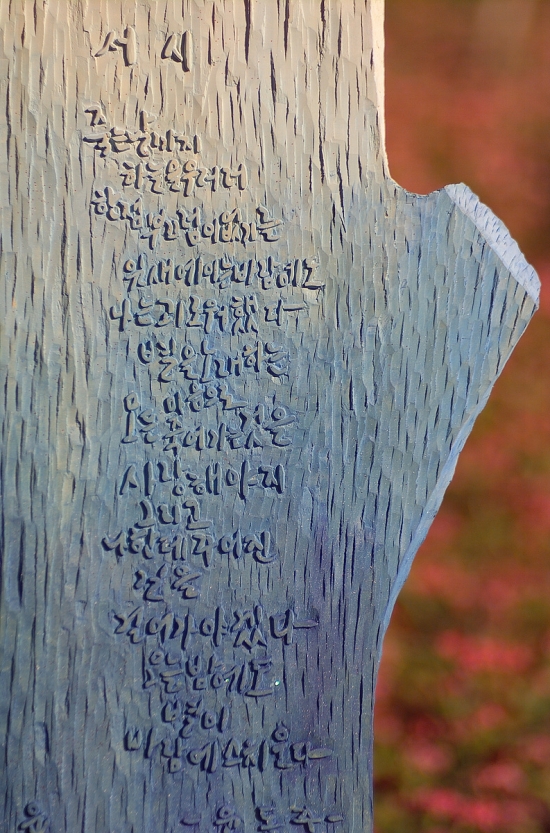 서 시
죽는날까지
하늘을우러러
한점부끄럼이없기를
잎새에이는바람에도
나는괴로워했다-
별을노래하는
마음으로
모든죽어가는것을
사랑해야지
그리고
나한테주어진
길을
걸어가야겠다-
오늘밤에도
별이
바람에스치운다-
- 윤 동 주 -